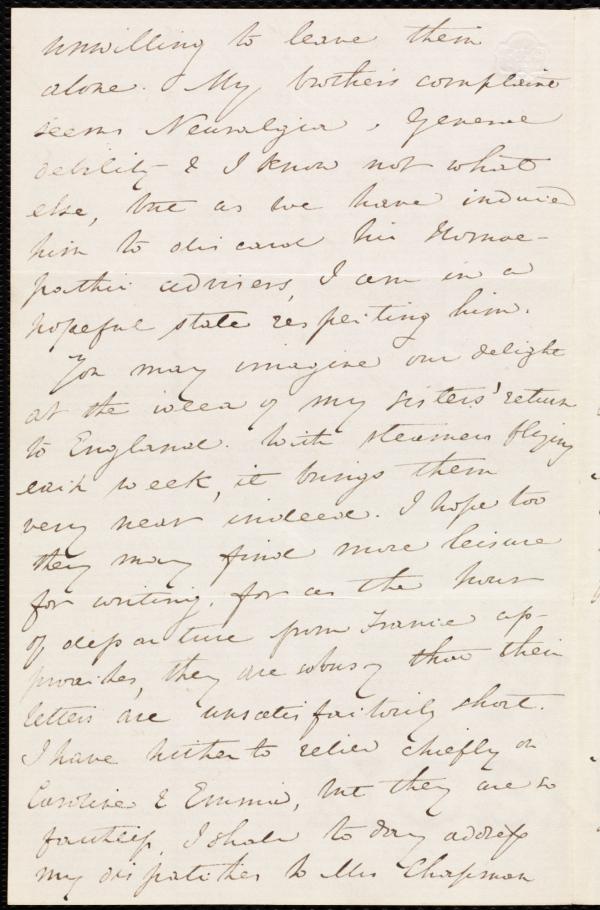 unwilling to leave them
alone. My brother's complaint
seems Neuralgia, General
debility & I know not what
else, but as we have induced
him to discard his Homoe-
pathic advisers, I am in a
hopeful state respecting him.
You may imagine our delight
at the idea of my sisters' return
to England. With steamers plying
each week, it brings them
very near indeed. I hope too
they may find more leisure
for writing, for as the hour
of departure from France ap-
proaches, they are so busy that their
letters are unsatisfactorily short.
I have hitherto relied chiefly on
Caroline & Emma, but they are so
I shall to day address
my dispatches to Mrs Chapman